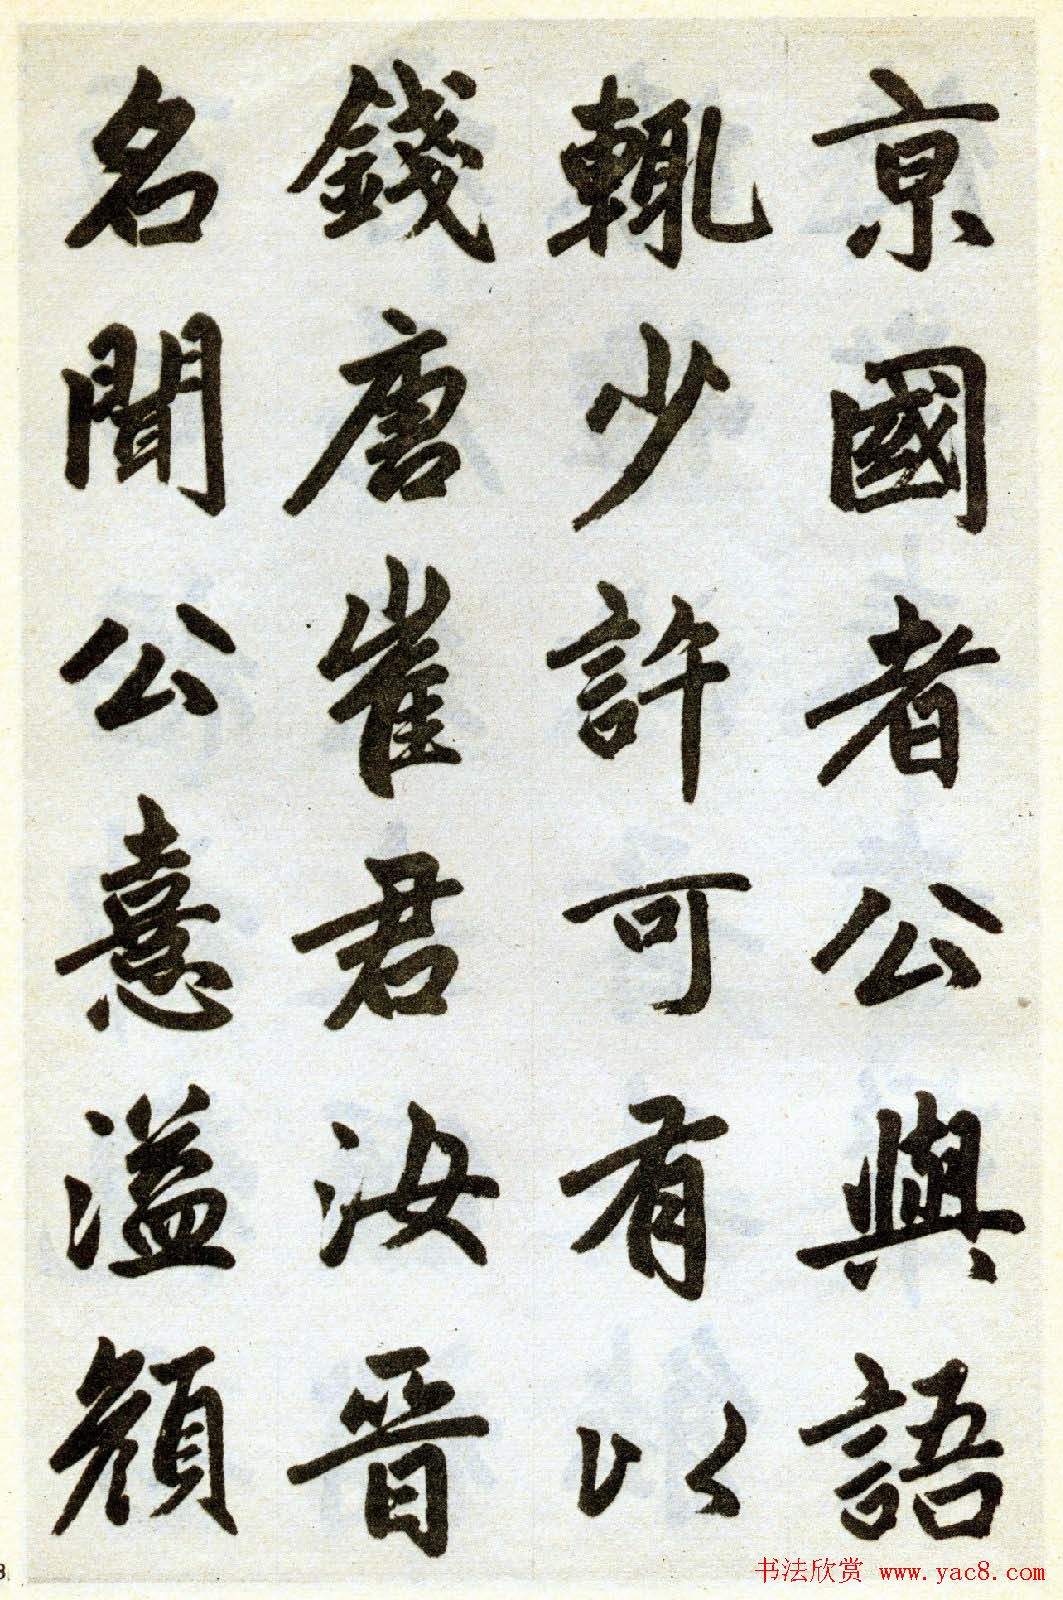 京國者公與語
輒少許可有以
錢唐崔君汝晉
名聞公意溢顏
8
书法欣赏 www.yac8.com